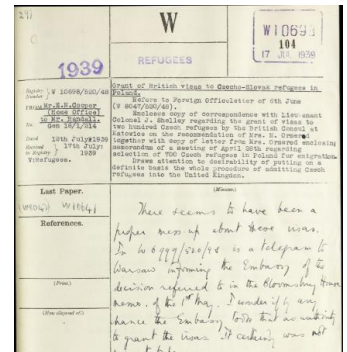 W
W10693
104
17 JUL 1939
1939
REFUGEES
Registry Number } W 10693/520/48
FROM Mr. E.N. Cooper
(Home Office)
to Mr. Randall.
No. Gen 16/1/214
Dated 12th July, 1939
Received in Registry } 17th July, 1939
W: Refugees.
Grant of British visas to Czecho-Slovak refugees in
Poland.
Refers to Foreign Office letter of 6th June
(W 8047/520/48)
Encloses copy of correspondence with Lieutenant
Colonel J. Shelley regarding the grant of visas to
two hundred Czech refugees by the British Consul at
Katowice on the recommendation of Mrs. H. Ormerod
together with copy of letter from Mrs. Ormerod enclosing
memorandum of a meeting of April 28th regarding
selection of 700 Czech refugees in Poland for emigration.
Draws attention to desirability of putting on a
definite basis the whole procedure of admitting Czech
refugees into the United Kingdom.
Last Paper.
(Minutes.)
References.
(Print.)
(How disposed of.)
There seems to have been a
proper mess up about these visas.
In W 6999/520/48 is a telegram to
Warsaw informing the Embassy of the
decision referred to in the Bloomsbury House
memo. of the 1st May. I wonder if by any
chance the Embassy took that as authority
to grant the visas. It certainly was not